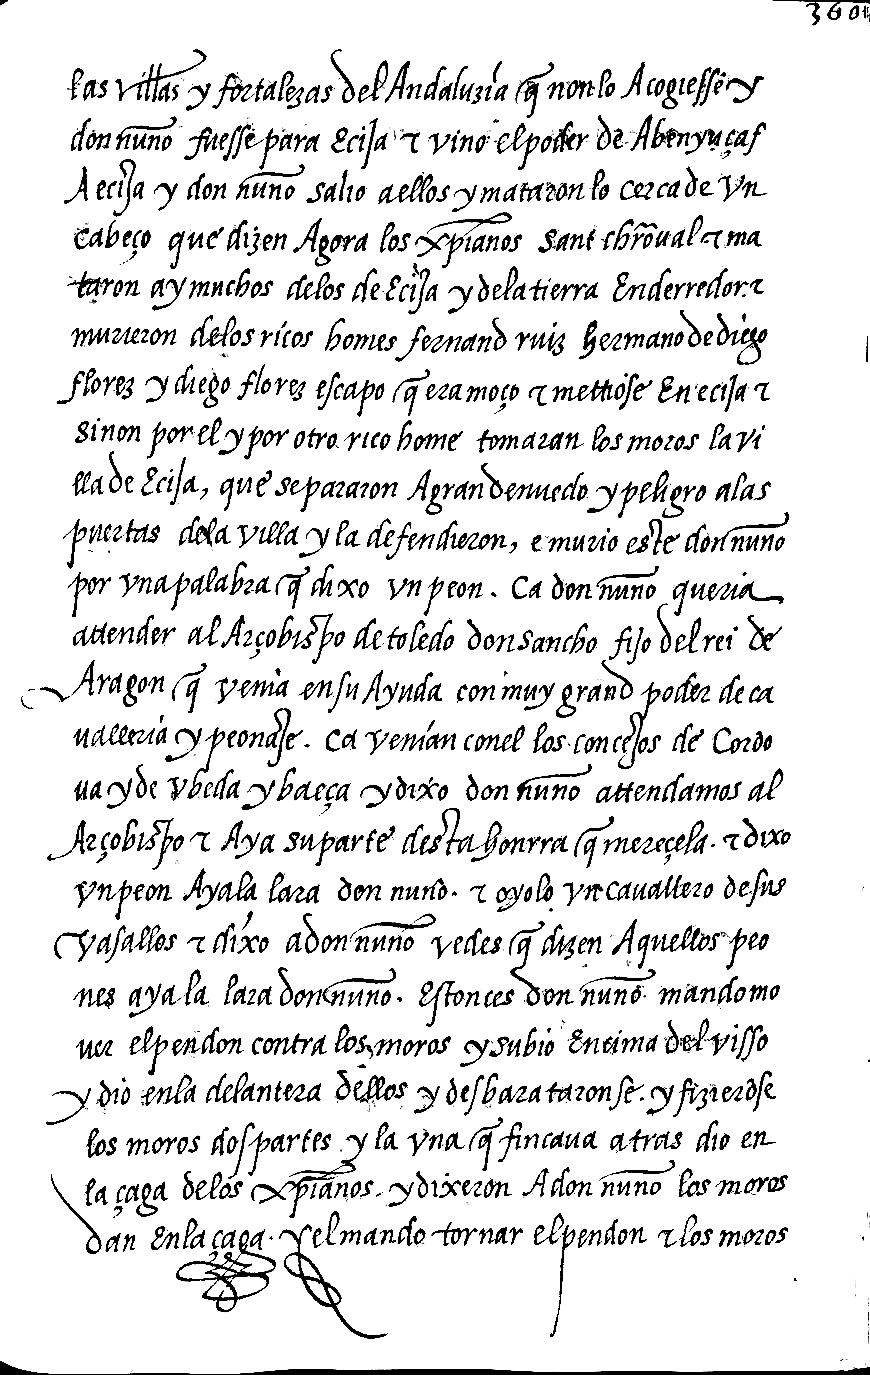 360
las villas y fortalezas del Andaluzía q̃ non lo Acogiessẽ y
don nuño fuesse para Ecija τ vino el poder de Abenyuçaf
A ecija y don nuño salio a ellos y mataron lo cerca de vn
Cabeço que dizen Agora los xp̃ianos Sant chrõual τ ma
taron ay muchos de los de Ecija y de la tierra Enderredor. τ
murieron de los ricos homes fernand ruiz hermano de diego
florez y diego florez escapo q̃ era moço τ mettiose En ecija τ
Sinon por el y por otro rico home tomaran los moros la vi
lla de Ecija, que se pararon A gran denuedo y peligro a las
puertas de la villa y la defendieron, e murio este don nuño
por vna palabra q̃ dixo vn peon. Ca don nuño queria
attender al Arçobisp̃o de toledo don Sancho fijo del rei de
Aragon q̃ venia en su Ayuda con muy grand poder de ca
ualleria y peonaje. Ca venían con el los concejos de Cordo
ua y de vbeda y baeça y dixo don nuño attendamos al
Arçobisp̃o τ Aya su parte desta honrra q̃ mereçela. τ dixo
vn peon Ayala lara don nuño. τ oyolo vn cauallero de sus
vasallos τ dixo a don nuño vedes q̃ dizen Aquellos peo
nes aya la lara don nuño. Estonces don nuño mando mo
uer el pendon contra los moros y subio Encima del visso
y dio en la delantera dellos y desbarataronse. y fizierõse
los moros dos partes y la vna q̃ fincaua atras dio en
la çaga de los xp̃ianos. y dixeron A don nuño los moros
dan En la çaga. y el mando tornar el pendon τ los moros